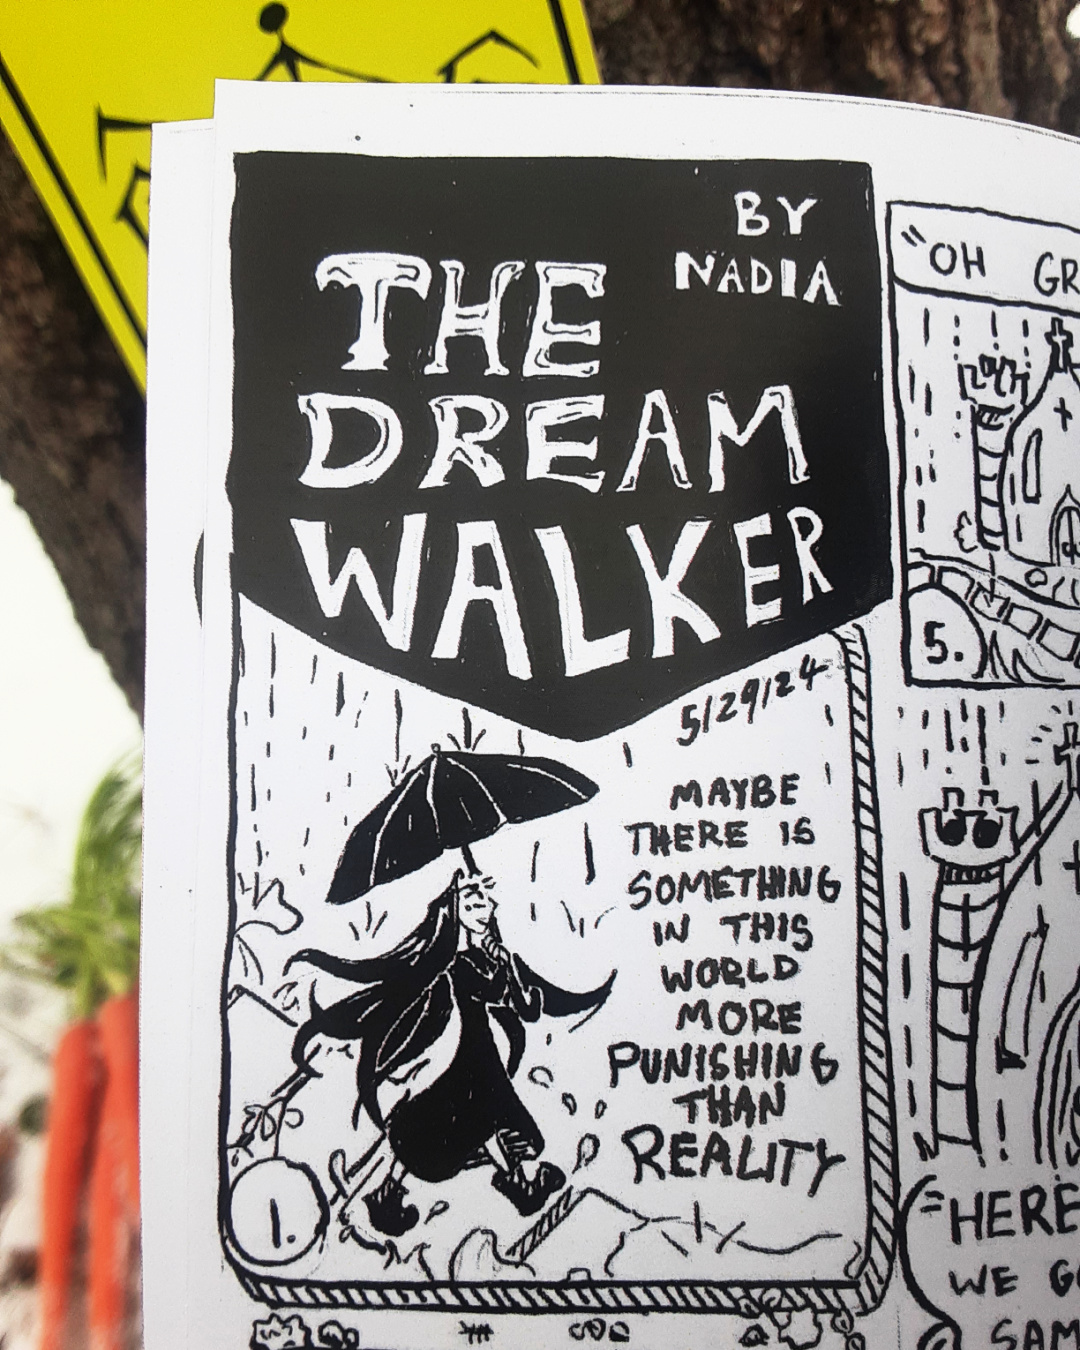 BY
NADIA
THE
DREAM
WALKER
5/29/24
MAYBE
THERE IS
SOMETHING
IN THIS
WORLD
MORE
PUNISHING
THAN
REALITY
1.
"OH GR
5.
"HERE
WE G
SAM